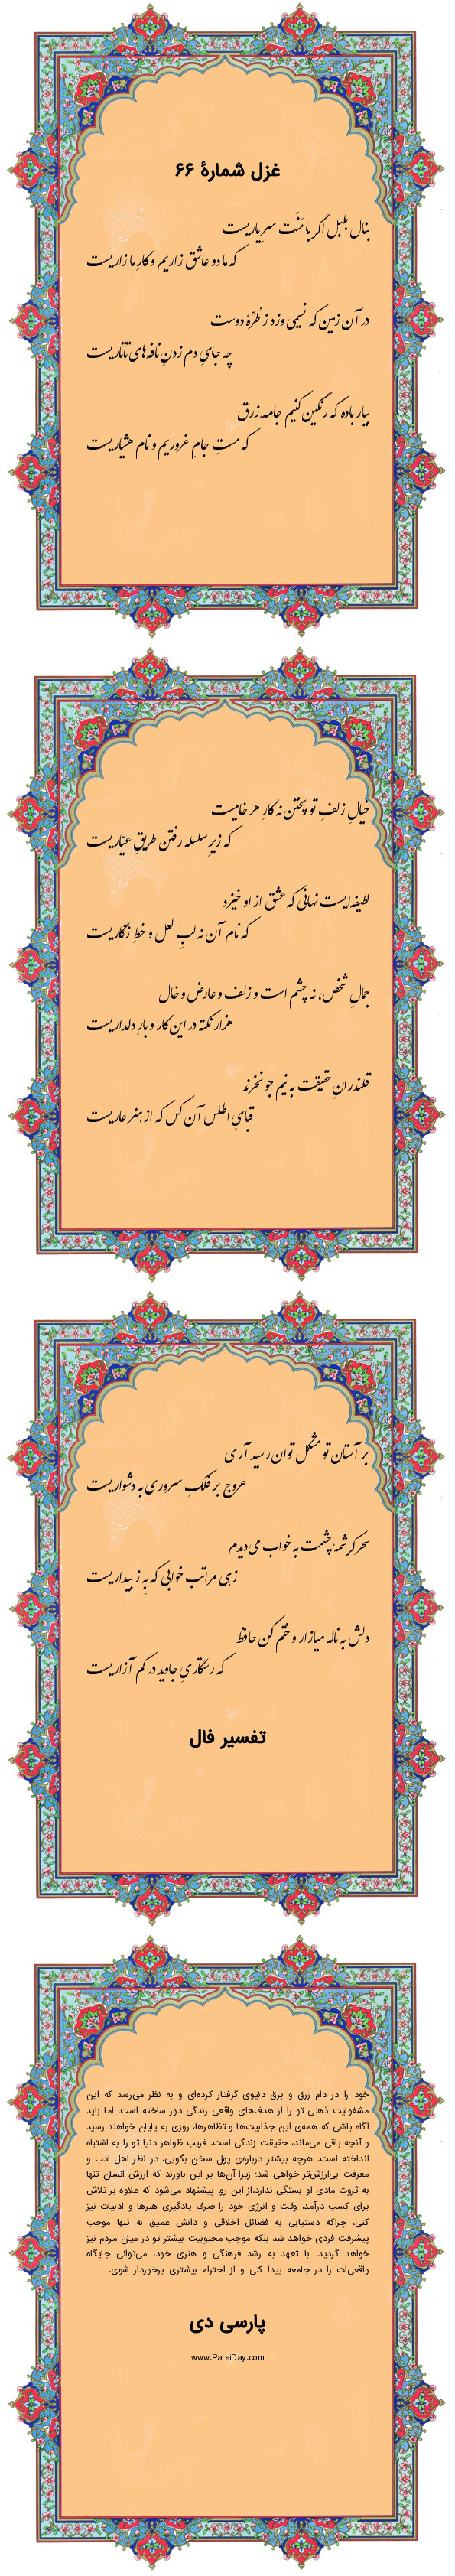 غزل شمارهٔ ۶۶
بنال بلبل اگر با مَنَت سرِ یاریست
که ما دو عاشق زاریم و کارِ ما زاریست
در آن زمین که نسیمی وزد ز طُرِّهٔ دوست
چه جایِ دم زدنِ نافه‌های تاتاریست
بیار باده که رنگین کنیم جامه زرق
که مستِ جامِ غروریم و نام هشیاریست
خیالِ زلفِ تو پختن نه کارِ هر خامیست
که زیرِ سلسله رفتن طریقِ عیّاریست
لطیفه‌ایست نهانی که عشق از او خیزد
که نام آن نه لبِ لعل و خطِ زنگاریست
جمالِ شخص، نه چشم است و زلف و عارض و خال
هزار نکته در این کار و بارِ دلداریست
قلندرانِ حقیقت به نیم جو نخرند
قبایِ اطلس آن کس که از هنر عاریست
بر آستان تو مشکل توان رسید آری
عروج بر فلکِ سروری به دشواریست
سحر کرشمهٔ چشمت به خواب می‌دیدم
زهی مراتب خوابی که بِه ز بیداریست
دلش به ناله میازار و ختم کن حافظ
که رستگاریِ جاوید در کم آزاریست
تفسیر فال
خود را در دام زرق و برق دنیوی گرفتار کرده‌ای و به نظر می‌رسد که این
مشغولیت ذهنی تو را از هدف‌های واقعی زندگی دور ساخته است. اما باید
آگاه باشی که همه‌ی این جذابیت‌ها و تظاهرها، روزی به پایان خواهند رسید
و آنچه باقی می‌ماند، حقیقت زندگی است. فریب ظواهر دنیا تو را به اشتباه
انداخته است. هرچه بیشتر درباره‌ی پول سخن بگویی، در نظر اهل ادب و
معرفت بی‌ارزش‌تر خواهی شد؛ زیرا آن‌ها بر این باورند که ارزش انسان تنها
به ثروت مادی او بستگی ندارد.از این رو، پیشنهاد می‌شود که علاوه بر تلاش
برای کسب درآمد، وقت و انرژی خود را صرف یادگیری هنرها و ادبیات نیز
کنی. چراکه دستیابی به فضائل اخلاقی و دانش عمیق نه تنها موجب
پیشرفت فردی خواهد شد بلکه موجب محبوبیت بیشتر تو در میان مردم نیز
خواهد گردید. با تعهد به رشد فرهنگی و هنری خود، می‌توانی جایگاه
واقعی‌ات را در جامعه پیدا کنی و از احترام بیشتری برخوردار شوی.
پارسی دی
www.ParsiDay.com